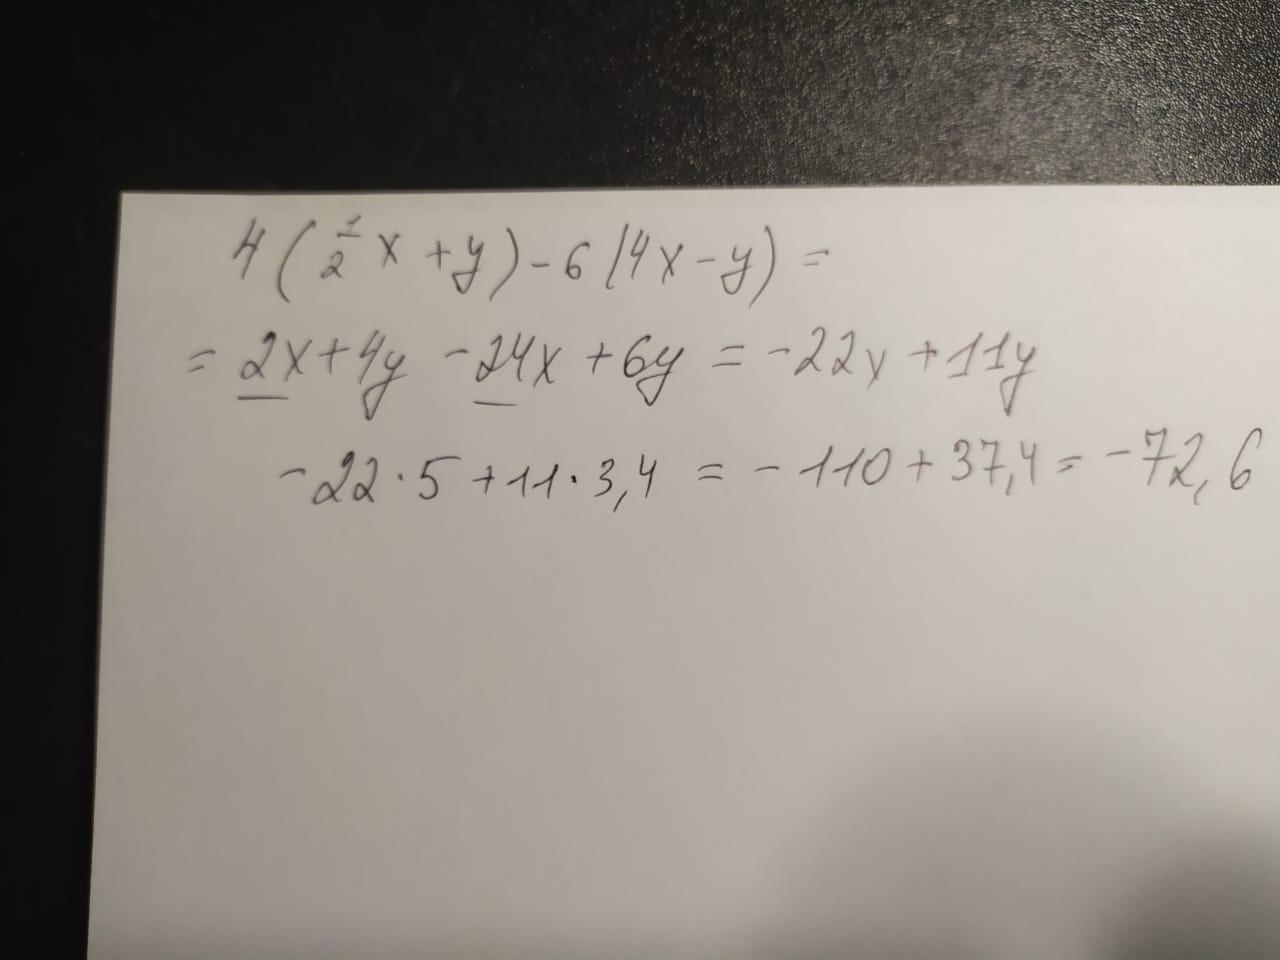 4(1/2 x + y) - 6(4x - y) =
= 2x + 4y - 24x + 6y = -22x + 11y
-22 · 5 + 11 · 3,4 = -110 + 37,4 = -72,6